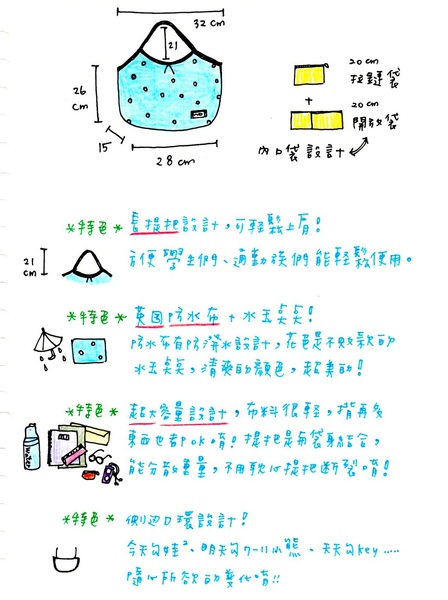 32 cm
21
26 cm
15
28 cm
20 cm
拉鏈袋
+
20 cm
開放袋
內口袋設計
*特色* 長提把設計，可輕鬆上肩！
21 cm
方便學生們、通勤族們能輕鬆使用。
*特色* 英國防水布 + 水玉點點！
防水布有防潑水設計，花色是不敗款的
水玉點點，清爽的顏色，超美的！
*特色* 超大容量設計，布料很輕，揹再多
東西也都ok唷！提把是與袋身結合，
能分散重量，不用耽心提把斷裂唷！
*特色* 側边口環設計！
今天勾娃娃、明天勾ㄱㄧ小熊、天天勾key.....
隨心所欲的變化唷!!